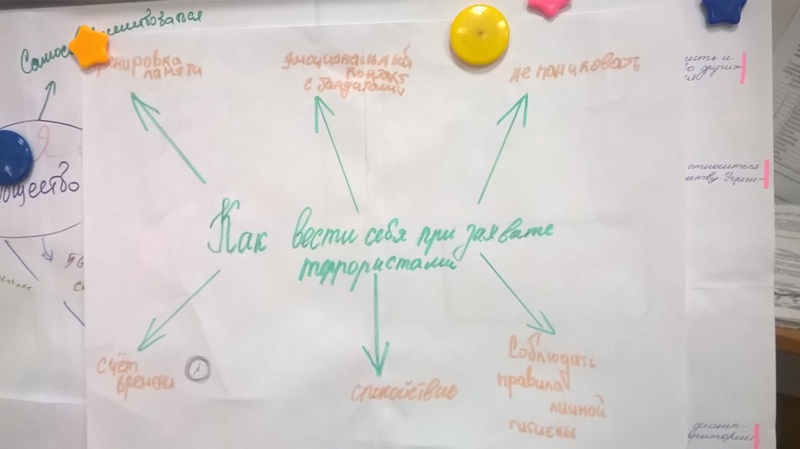 Тренировка
памяти
Эмоциональный
контакт
с бандитами
не паниковать
Как вести себя при захвате
террористами
счёт
времени
спокойствие
Соблюдать
правила
личной
гигиены
Я
общество